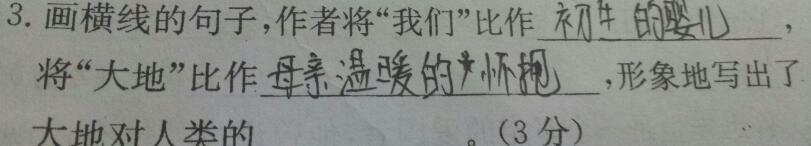 3. 画横线的句子,作者将“我们”比作 初生的婴儿 ,
将“大地”比作 母亲温暖的怀抱 ,形象地写出了
大地对人类的 。(3分)